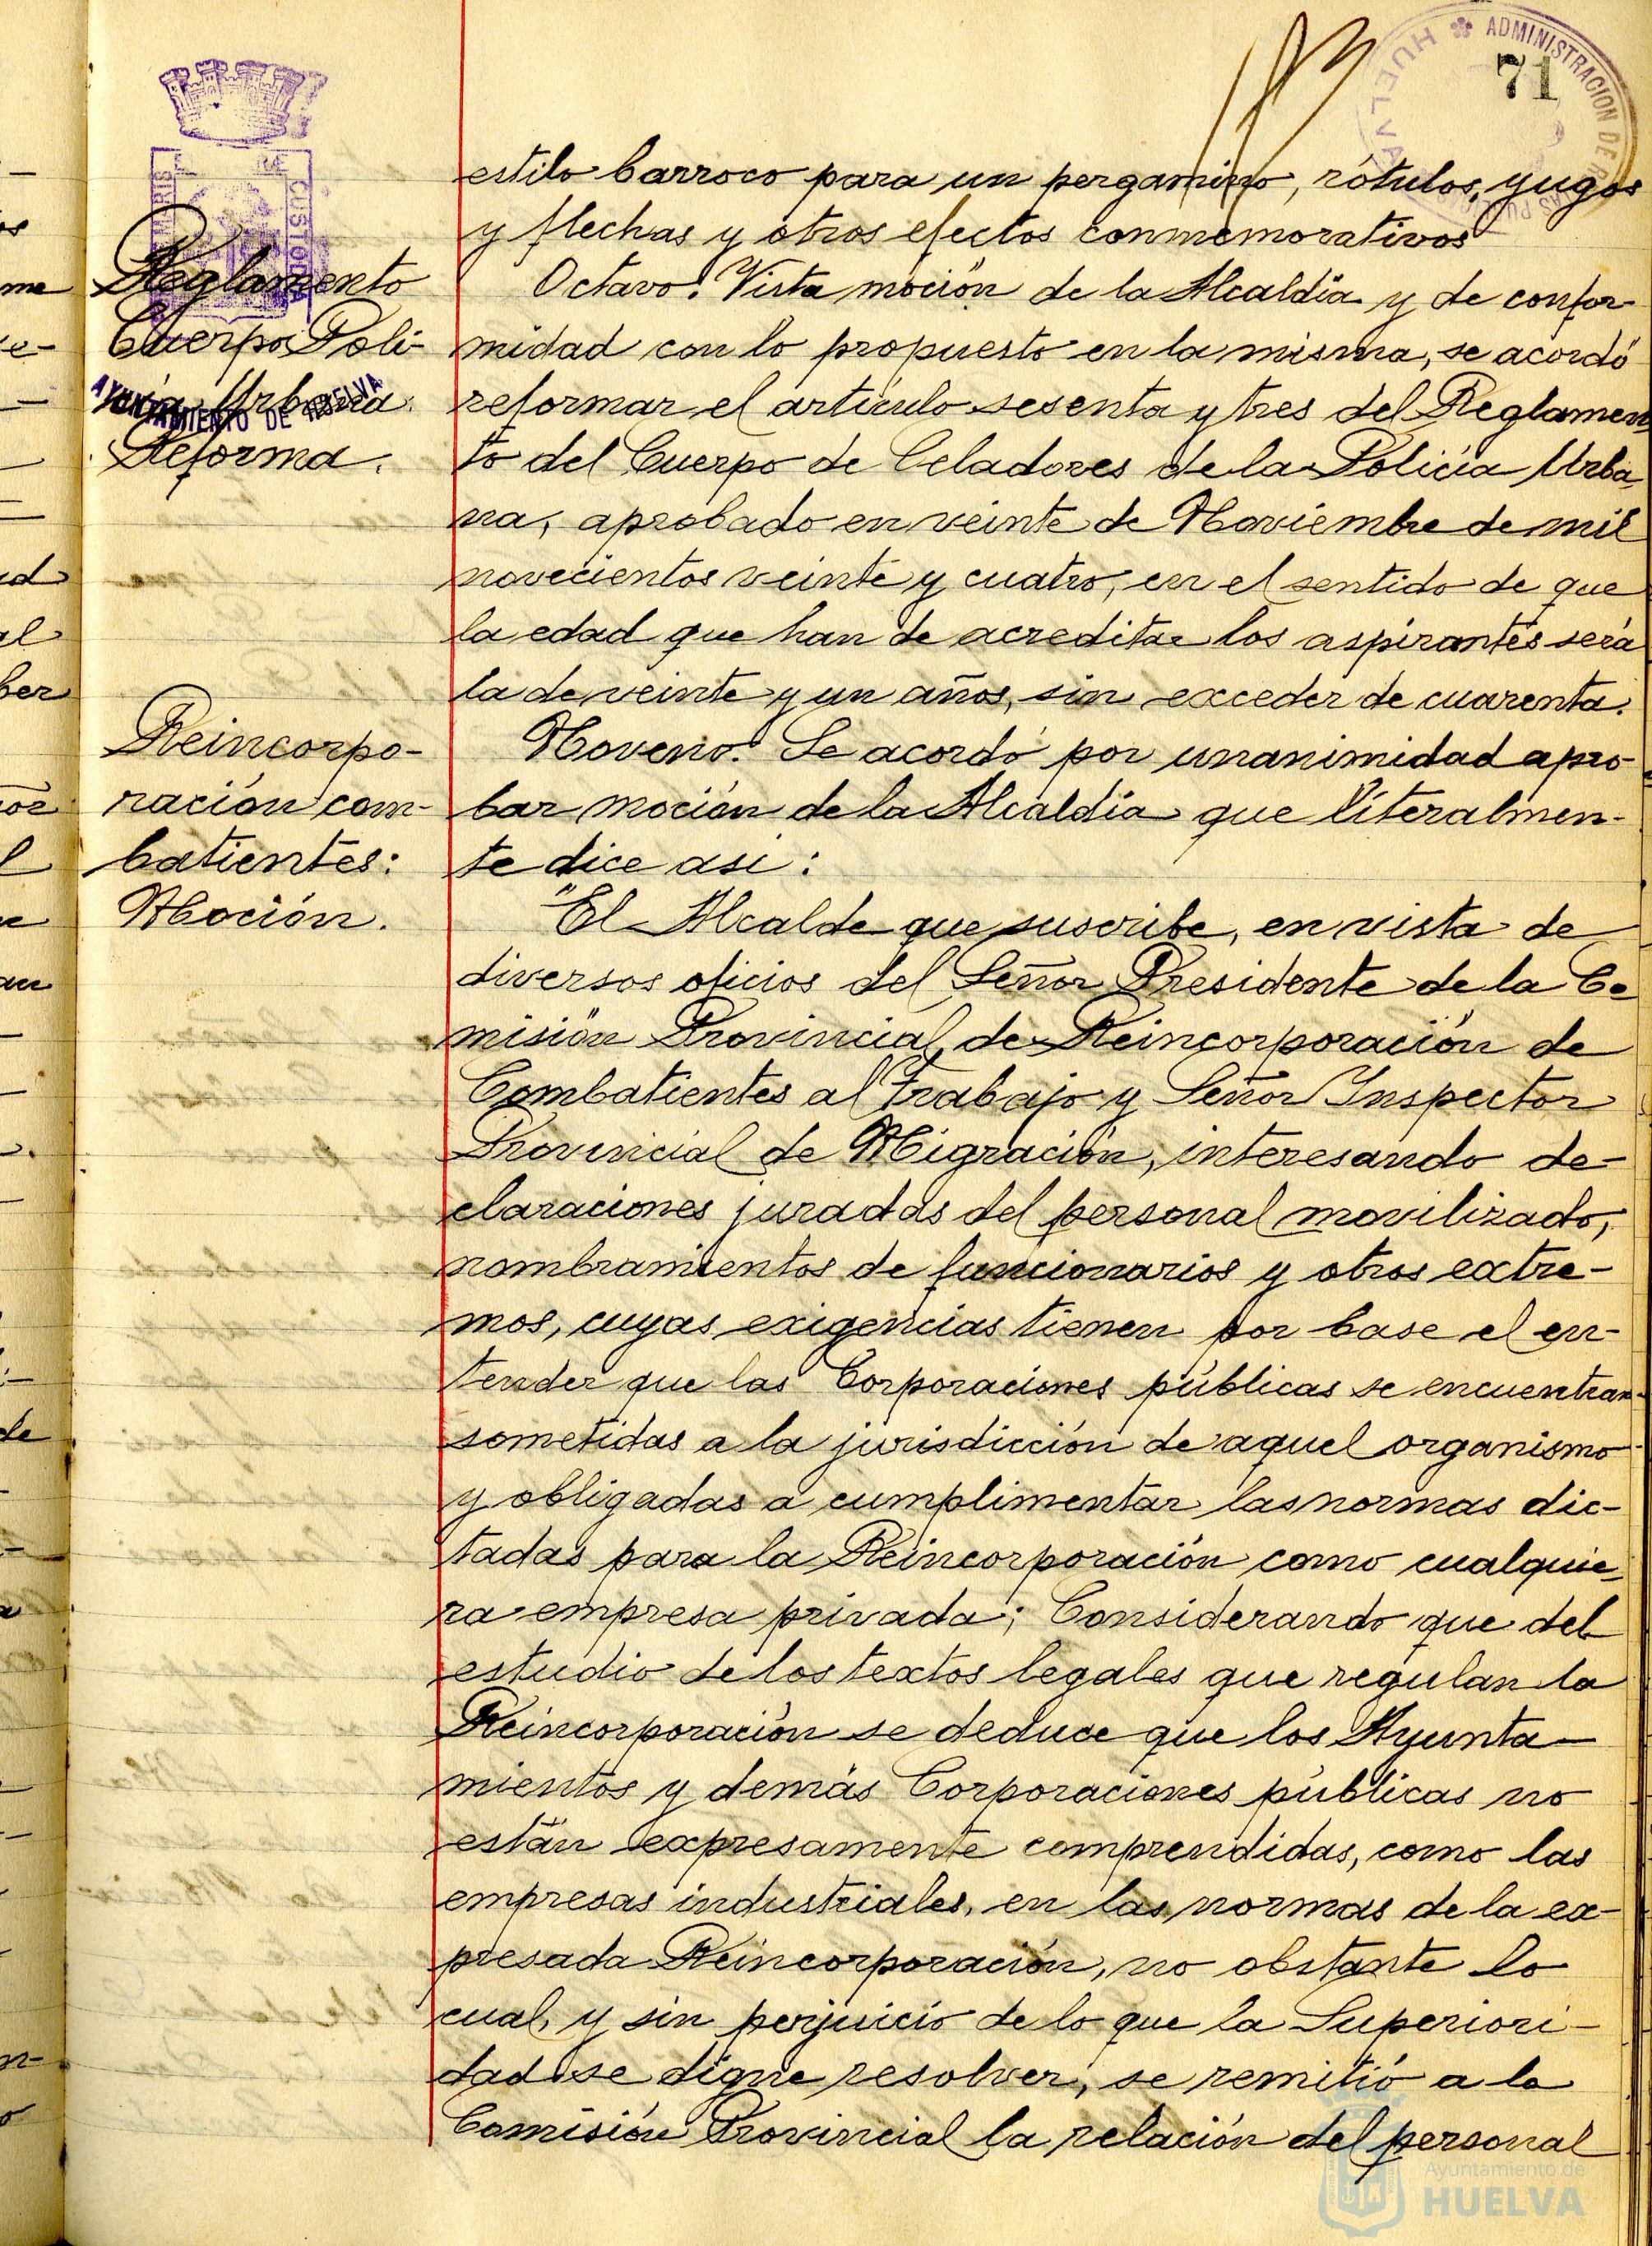 71
HUELVA ADMINISTRACION DE
AYUNTAMIENTO DE HUELVA
CUSTODIA
estilo barroco para un pergamino, rótulos, yugos
y flechas y otros efectos conmemorativos
Reglamento
Cuerpo Poli-
cía Urbana.
Reforma.
Octavo: Vista moción de la Alcaldía y de confor-
midad con lo propuesto en la misma, se acordó
reformar el artículo sesenta y tres del Reglamen
to del Cuerpo de Celadores de la Policía Urba-
na, aprobado en veinte de Noviembre de mil
novecientos veinte y cuatro, en el sentido de que
la edad que han de acreditar los aspirantes será
la de veinte y un años, sin exceder de cuarenta.
Reincorpo-
ración com-
batientes:
Moción.
Noveno: Se acordó por unanimidad apro-
bar moción de la Alcaldía que literalmen-
te dice asi:
"El Alcalde que suscribe, en vista de
diversos oficios del Señor Presidente de la Co
misión Provincial de Reincorporación de
Combatientes al Trabajo y Señor Inspector
Provincial de Migración, interesando de-
claraciones juradas del personal movilizado,
nombramientos de funcionarios y otros extre-
mos, cuyas exigencias tienen por base el en-
tender que las Corporaciones públicas se encuentran
sometidas a la jurisdicción de aquel organismo
y obligadas a cumplimentar las normas dic-
tadas para la Reincorporación como cualquie-
ra empresa privada; Considerando que del
estudio de los textos legales que regulan la
Reincorporación se deduce que los Ayunta-
mientos y demás Corporaciones públicas no
están expresamente comprendidas, como las
empresas industriales, en las normas de la ex-
presada Reincorporación, no obstante lo
cual, y sin perjuicio de lo que la Superiori-
dad se digne resolver, se remitió a la
Comisión Provincial la relación del personal
Ayuntamiento de
HUELVA